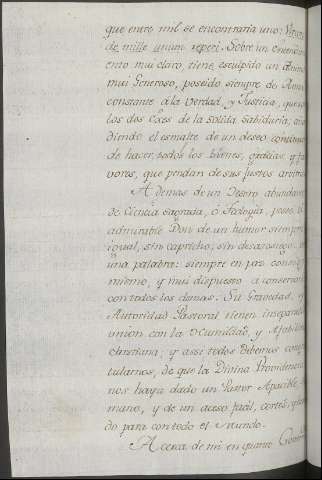 que entre mil se encontraria uno: Virum
de mille unum reperi. Sobre un Entendimi
ento mui claro tiene esculpido un Animo
mui Generoso, poseido siempre de Amor
constante â la Verdad, y Justicia, que son
los dos Exes de la solida sabiduria;
diendo el esmalte de un deseo continuo
de hacer todos los bienes, gracias, y fa
vores, que pendan de sus justos arbitrios
Ademas de un Tesoro abundante
de Ciencia Sagrada, ô Teologia, posee el
admirable Don de un humor siempre
igual, sin capricho, sin desasosiego, en
una palabra: siempre en paz consigo
mismo, y mui dispuesto a conservarla
con todos los demas. Su Gravedad, y
Autoridad Pastoral tienen inseparable
union con la Humildad, y Afabilidad
christiana; y assi todos debemos congra
tularnos, de que la Divina Providencia
nos haya dado un Pastor Apacible, hu
mano, y de un aceso facil, cortés, y
do para con todo el Mundo.
Acerca de mi en quanto